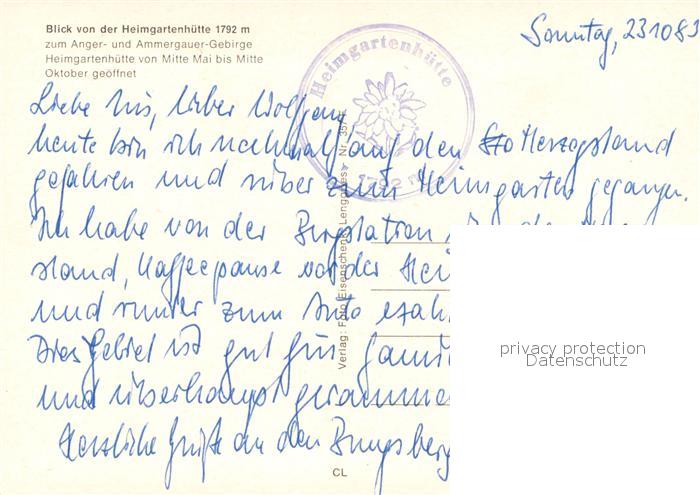 Blick von der Heimgartenhütte 1792 m
zum Anger- und Ammergauer-Gebirge
Heimgartenhütte von Mitte Mai bis Mitte
Oktober geöffnet
Sonntag, 231083
Heimgartenhütte
1792 m
Liebe Iris, lieber Wolfgang
heute bin ich nochmal auf den Herzogstand
gefahren und rüber zum Heimgarten gegangen.
Ich habe von der Bergstation
stand, Kaffeepause vor der Hei
und runter zum Auto
Dies Gebiet ist gut für
und überhaupt
Herzliche Grüße an den
Verlag: Foto Eisenschenk, Lenggries Nr.
CL
privacy protection
Datenschutz